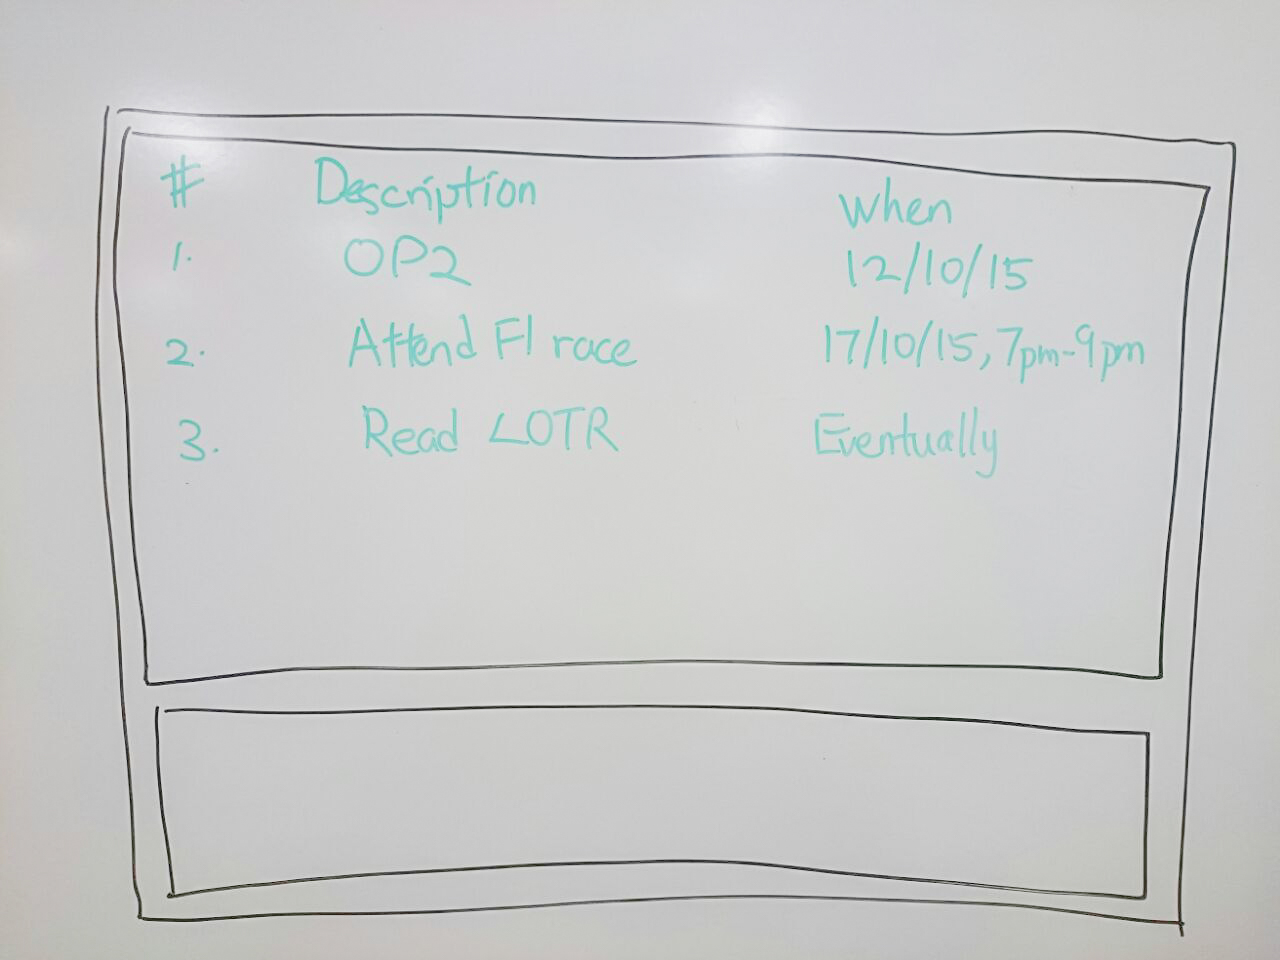 # Description When
1. OP2 12/10/15
2. Attend F1 race 17/10/15, 7pm-9pm
3. Read LOTR Eventually